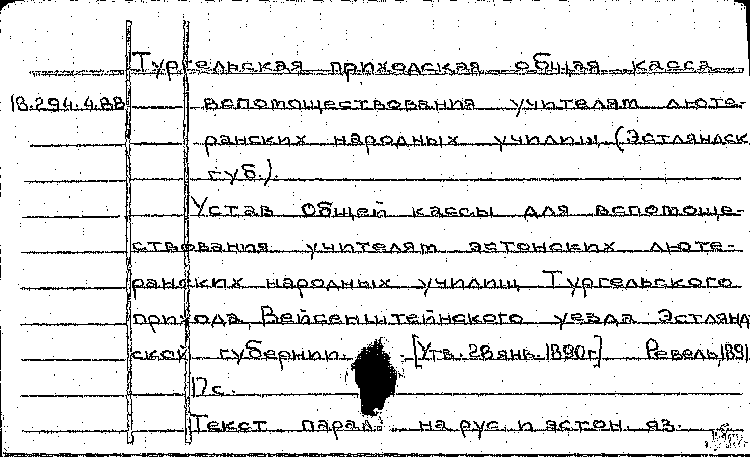 Тургельская приходская общая касса
18.294.4.88 вспомоществования учителям люте-
ранских народных училищ. (Эстляндск.
губ.).
Устав Общей кассы для вспомоще-
ствования учителям эстонских люте-
ранских народных училищ Тургельского
прихода, Вейсенштейнского уезда Эстлянд-
ской губернии. [Утв. 28 янв. 1890 г.] Ревель, 1891
17 с.
Текст парал. на рус. и эстон. яз.